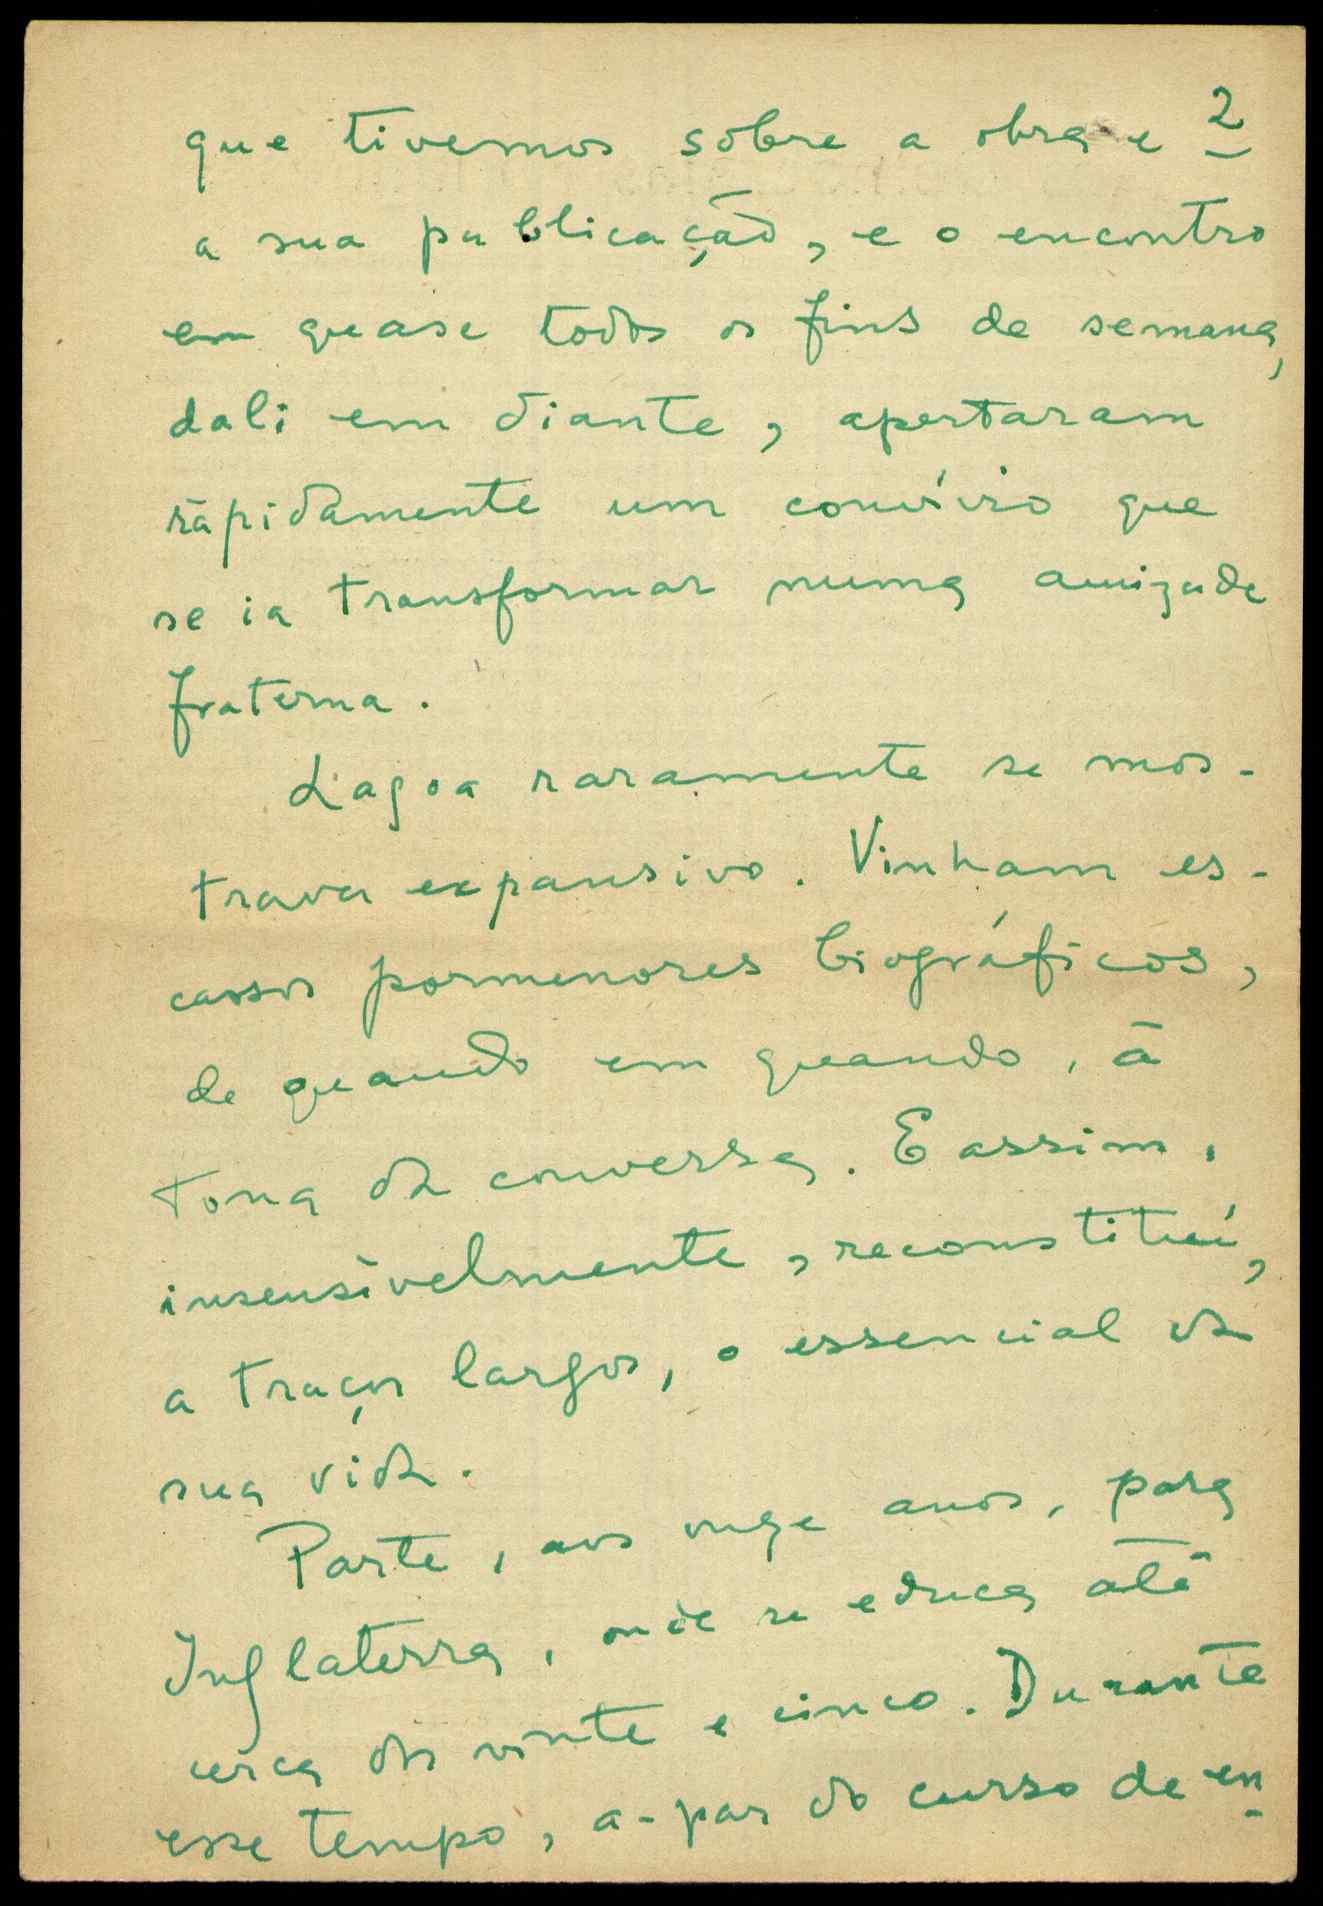 2
que tivemos sôbre a obra e
a sua publicação, e o encontro
em quase todos os fins de semana,
dali em diante, apertaram
ràpidamente um convívio que
se ia transformar numa amizade
fraterna.
Lagoa raramente se mos-
trava expansivo. Vinham es-
cassos pormenores biográficos,
de quando em quando, à
tona da conversa. E assim,
insensìvelmente, reconstituí,
a traços largos, o essencial da
sua vida.
Parte, aos onze anos, para
Inglaterra, onde se educa até
cerca dos vinte e cinco. Durante
esse tempo, a-par do curso de en-